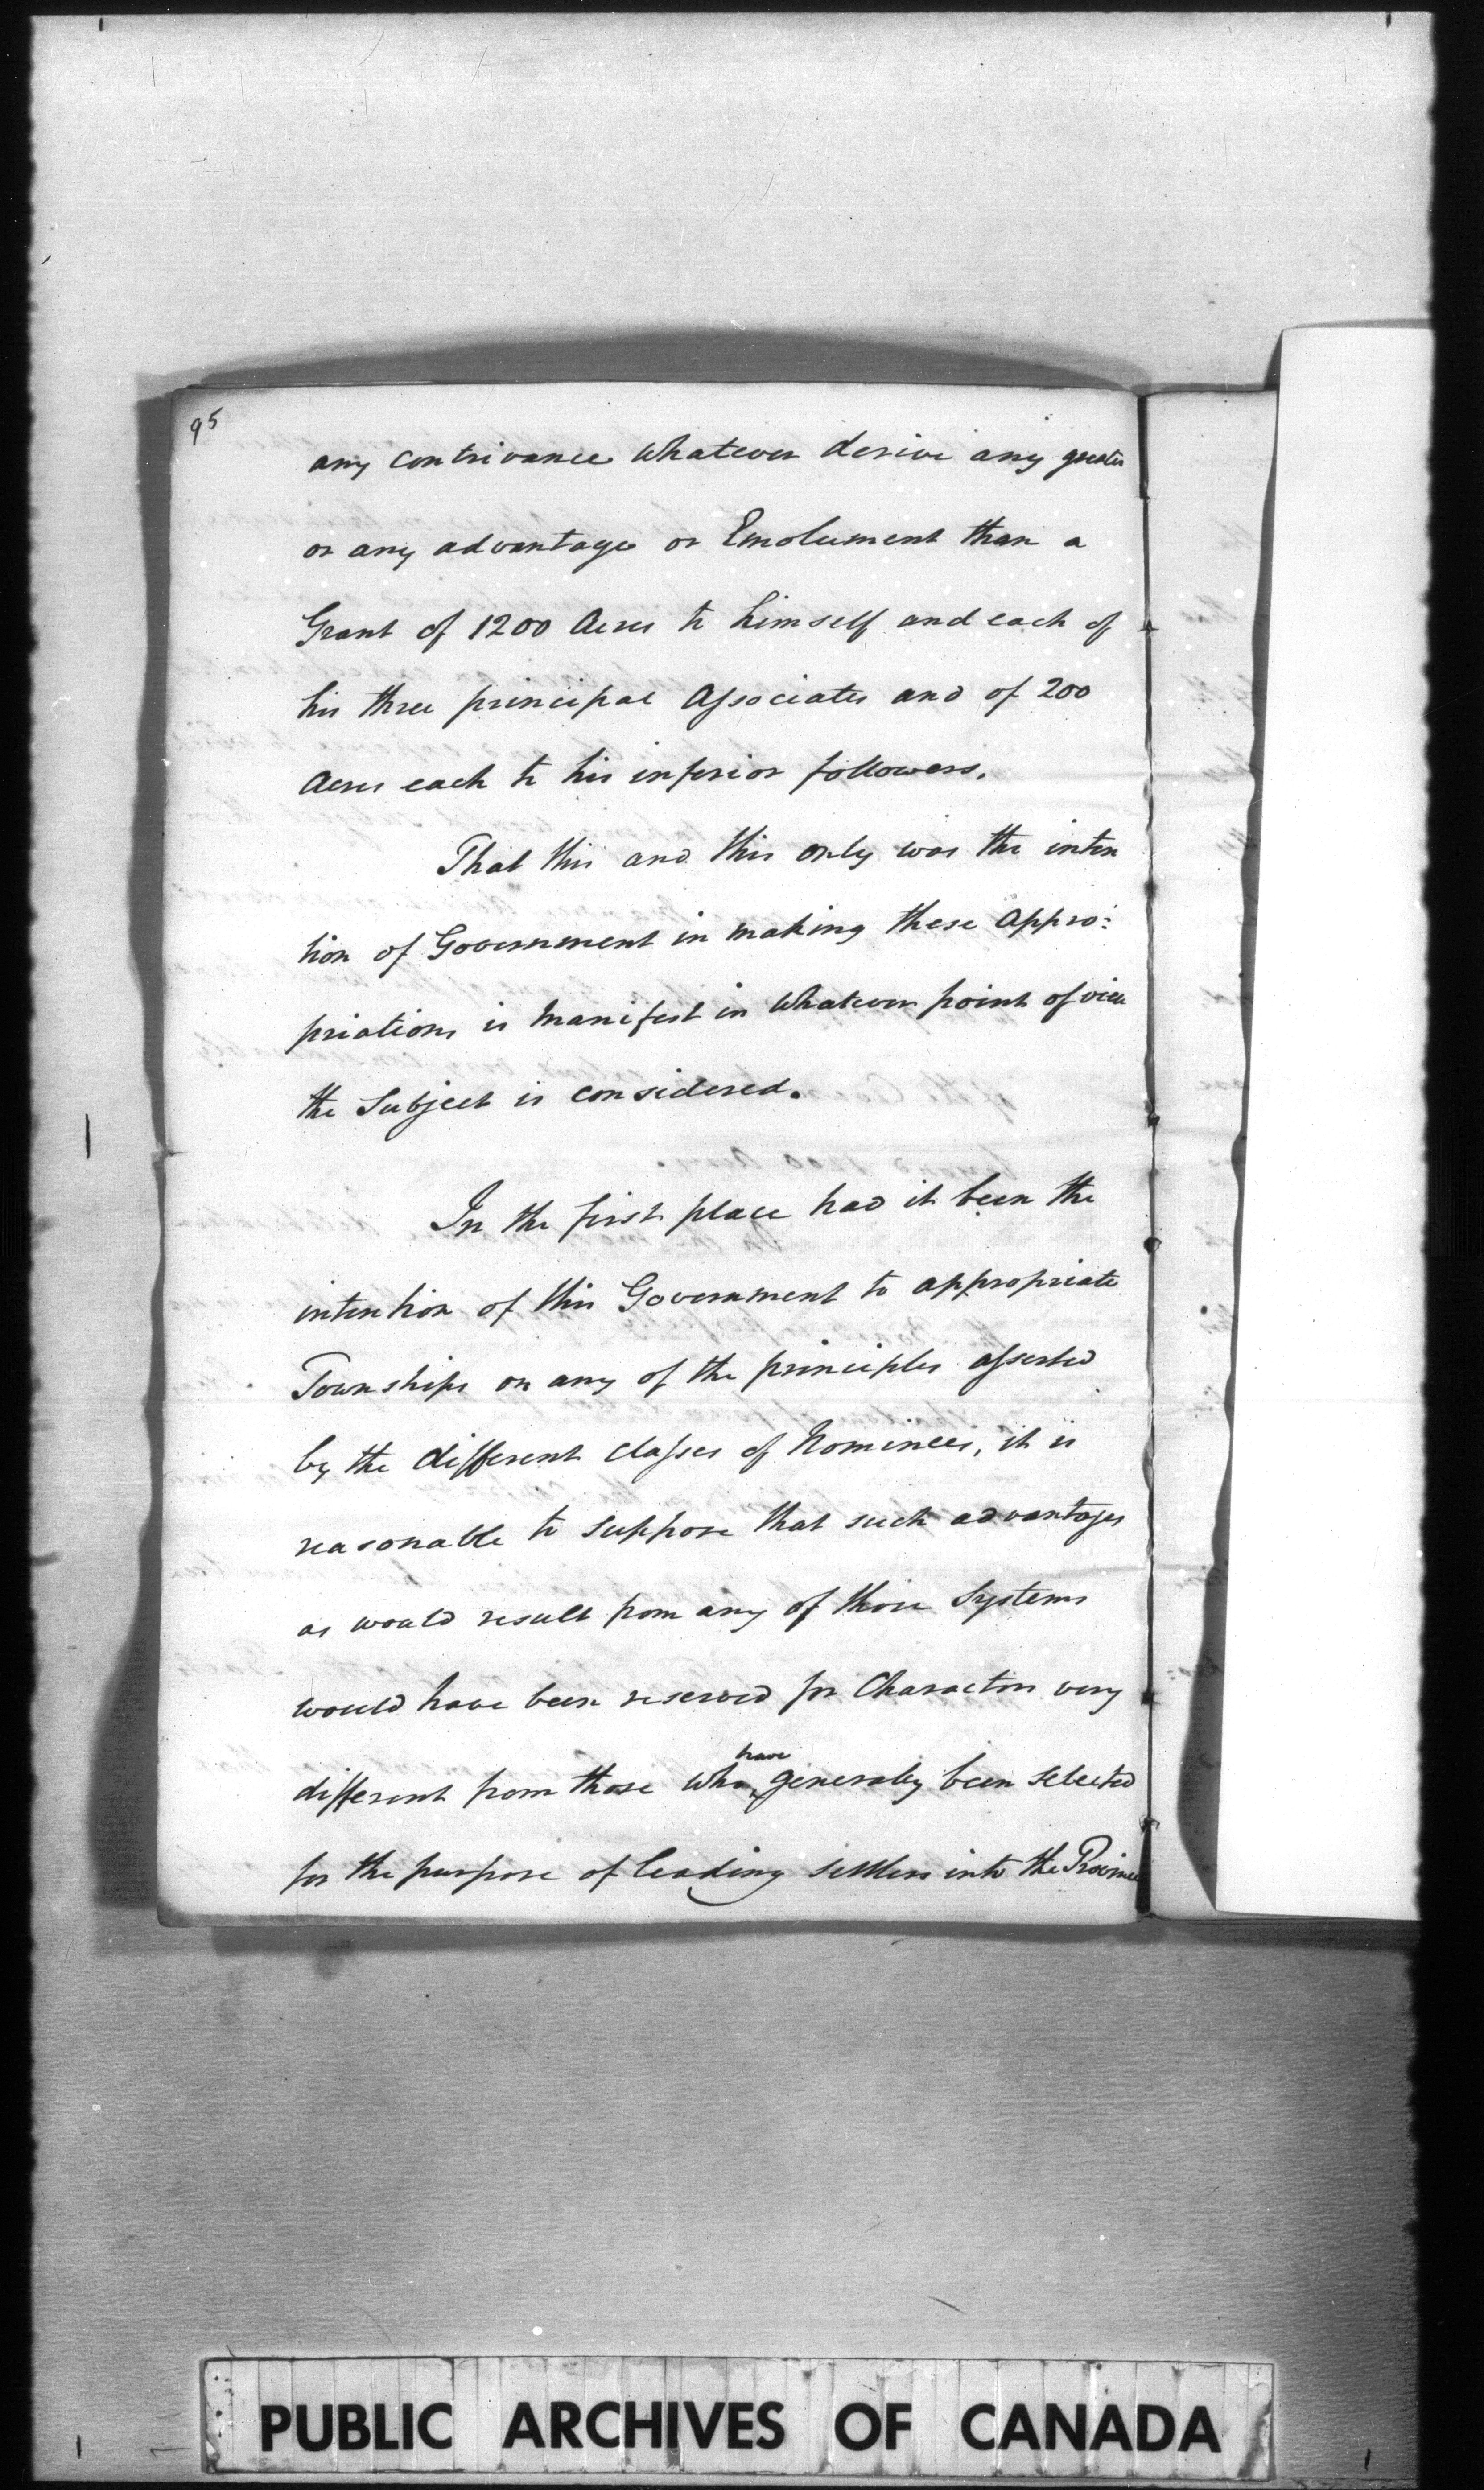 95
any contrivance whatever derive any greater
or any advantage or Emolument than a
Grant of 1200 Acres to himself and each of
his three principal Associates and of 200
Acres each to his inferior followers.
That this and this only was the inten
tion of Government in making these appro:
priations is manifest in whatever point of view
the Subject is considered.
In the first place had it been the
intention of this Government to appropriate
Townships on any of the principles asserted
by the different classes of Nominees, it is
reasonable to suppose that such advantages
as would result from any of those Systems
would have been reserved for Characters very
have
different from those who generally been selected
for the purpose of leading settlers into the Province
PUBLIC ARCHIVES OF CANADA